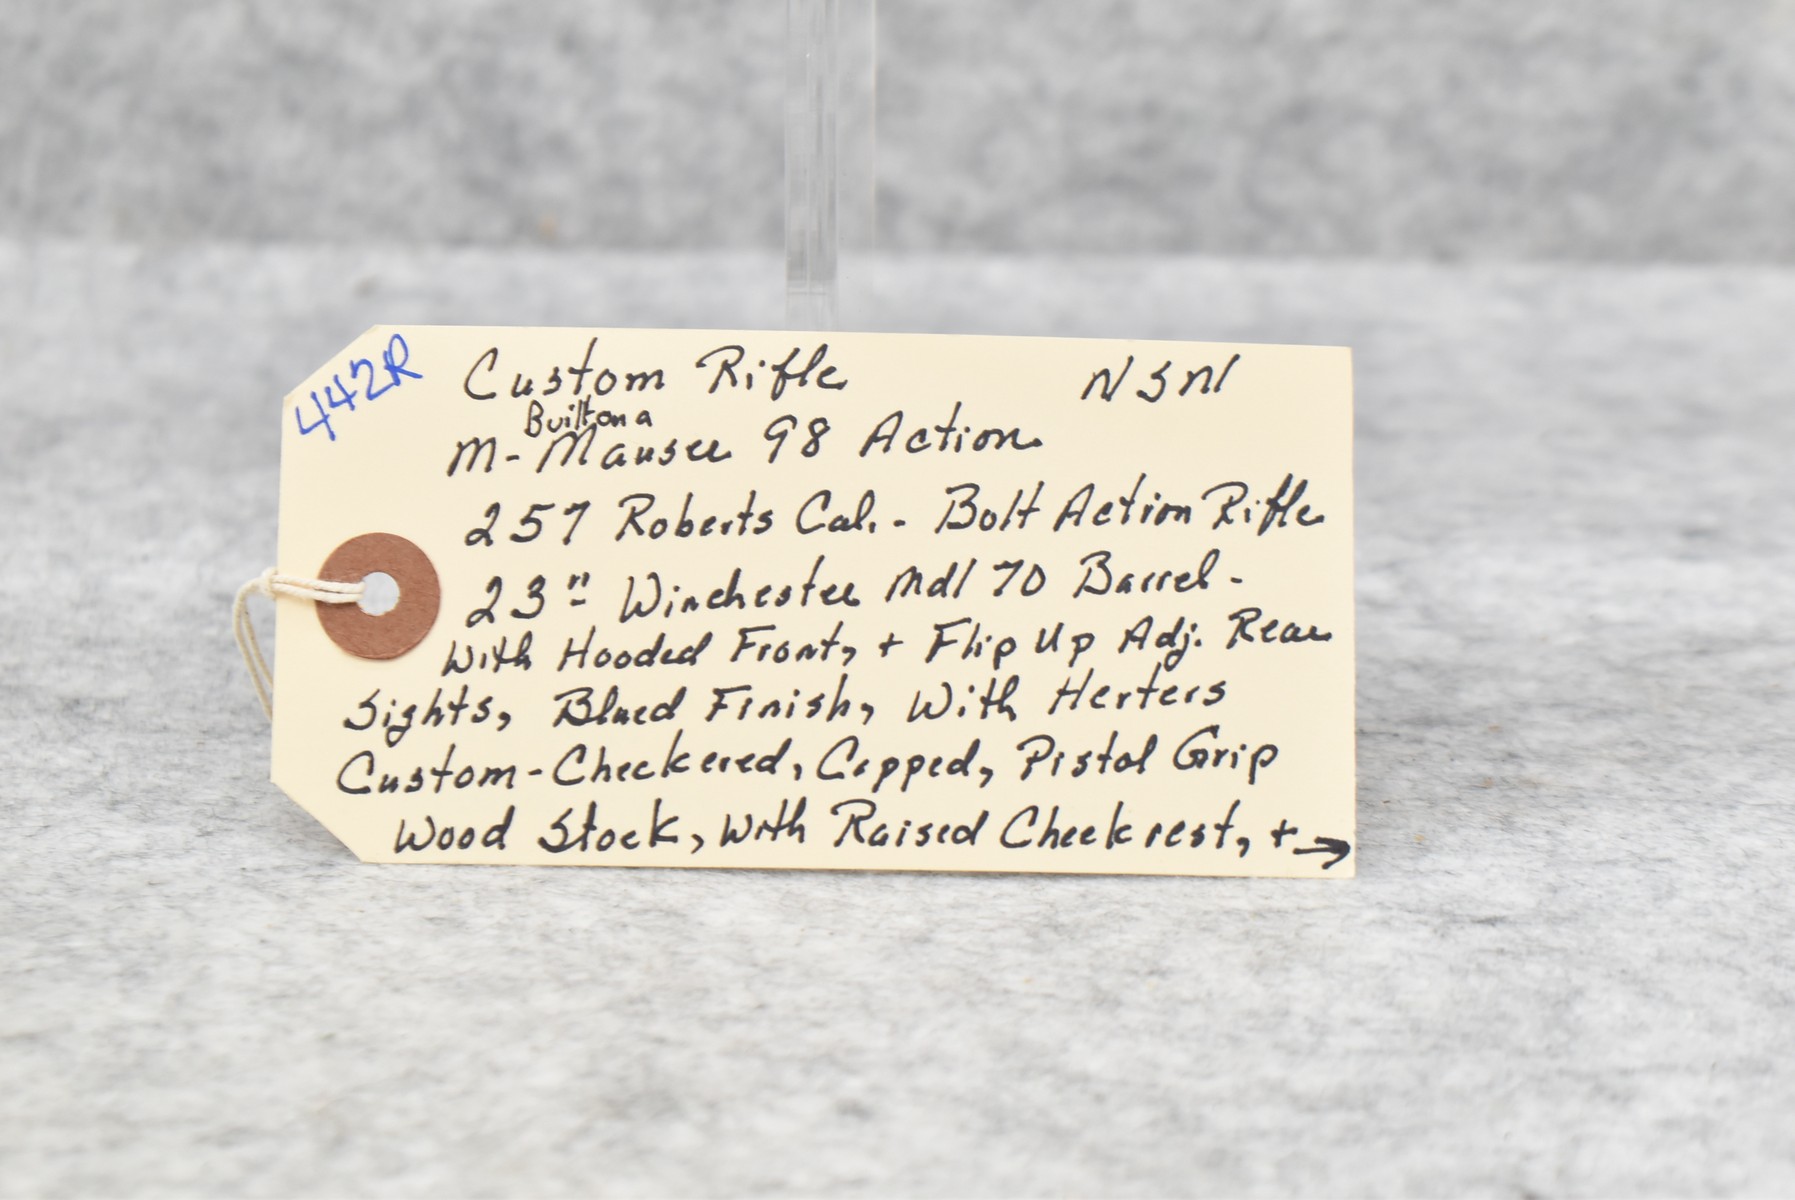 442R
Custom Rifle NSN
Built on a
M- Mauser 98 Action
257 Roberts Cal. - Bolt Action Rifle
23" Winchester Mdl 70 Barrel -
With Hooded Front, + Flip Up Adj. Rear
Sights, Blued Finish, With Herters
Custom - Checkered, Capped, Pistol Grip
Wood Stock, With Raised Cheekrest, + →